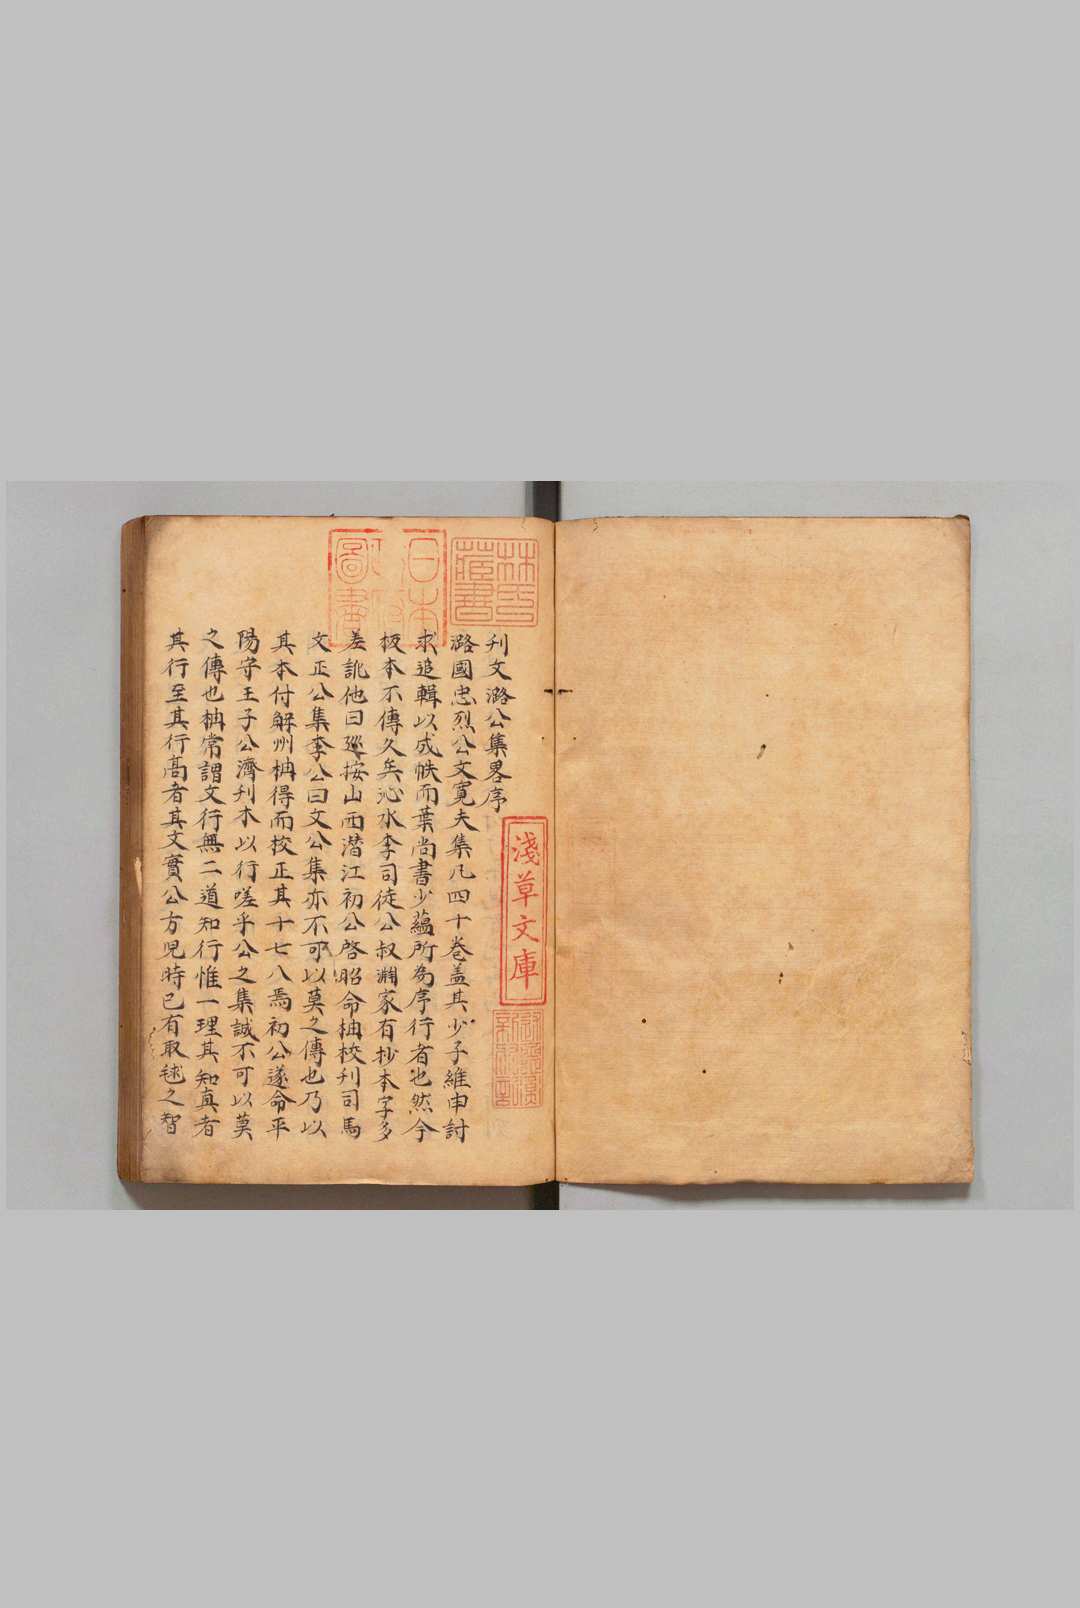 刋文潞公集畧序
潞國忠烈公文寛夫集凡四十卷盖其少子維申討
求追輯以成帙而葉尚書少蘊所為序行者也然今
板本不傳久矣沁水李司徒公叔淵家有抄本字多
差訛他日廵按山西潜江初公啓昭命柟校刋司馬
文正公集李公曰文公集亦不可以莫之傳也乃以
其本付解州柟得而校正其十七八焉初公遂命平
陽守王子公濟刋本以行嗟乎公之集誠不可以莫
之傳也柟常謂文行無二道知行惟一理其知真者
其行至其行髙者其文實公方児時已有取毬之智
林氏藏書
日本
圖書
淺草文庫